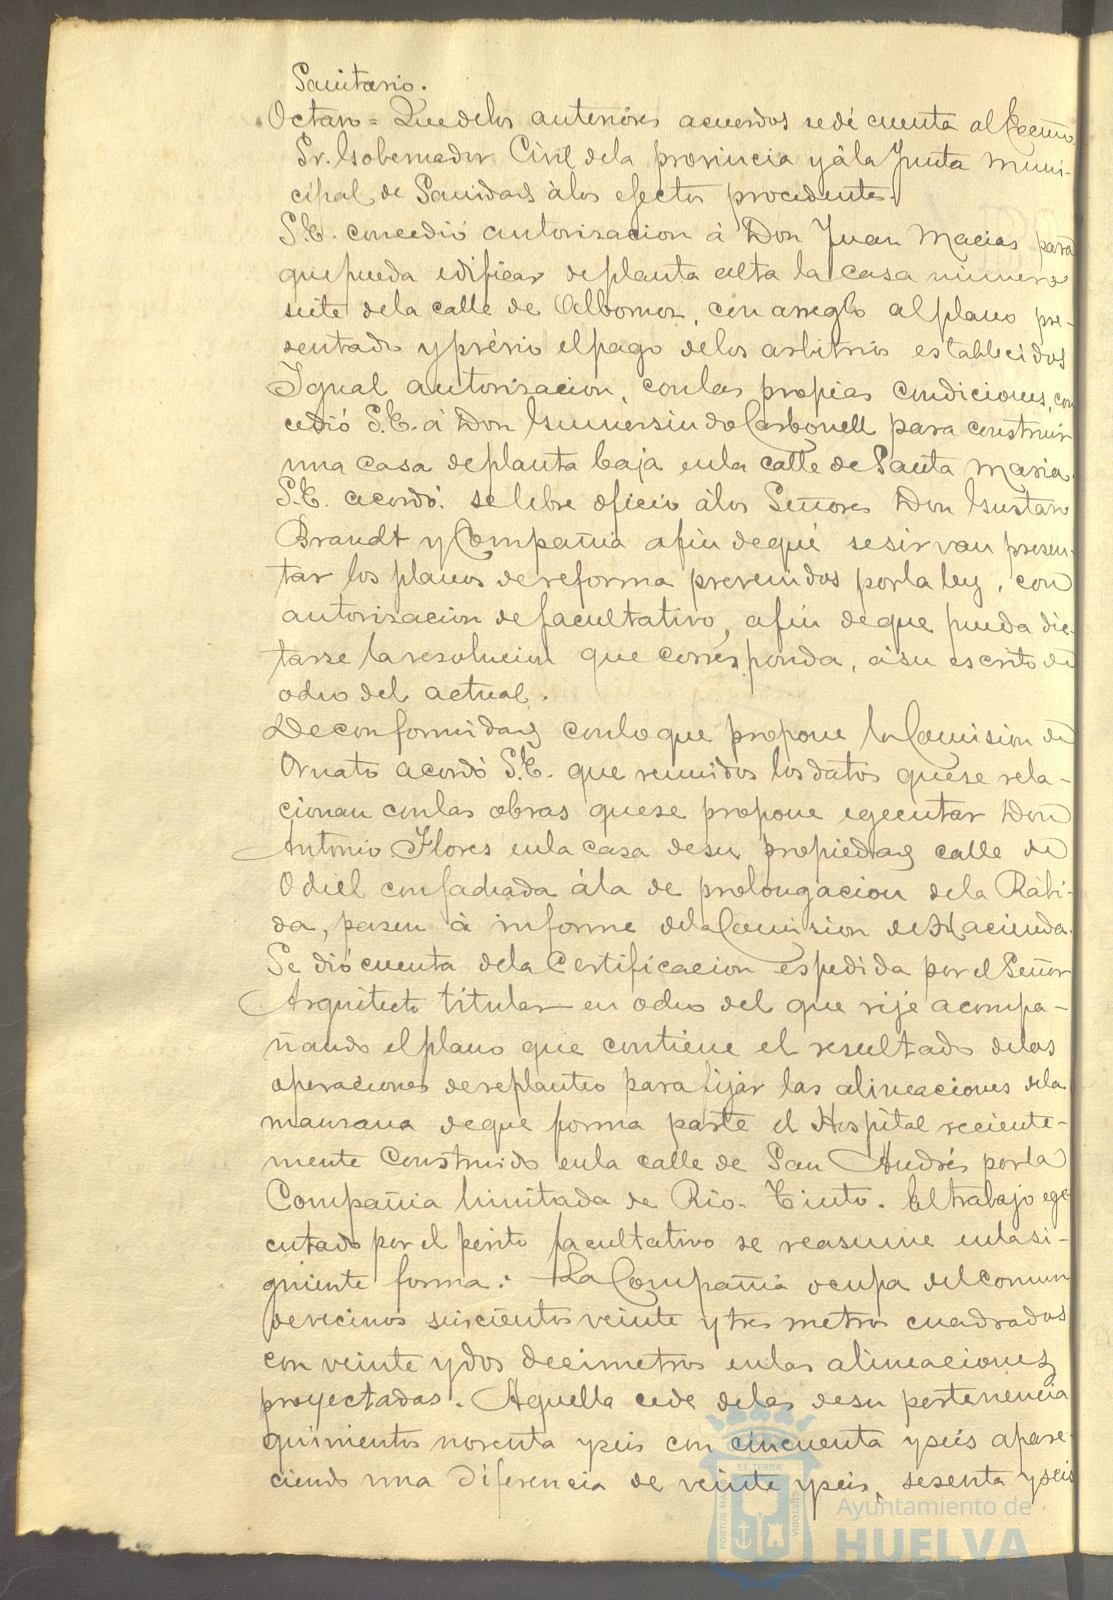 Sanitario.
Octavo = Que de los anteriores acuerdos se dé cuenta al Excmo.
Sr. Gobernador Civil de la provincia y á la Junta Muni-
cipal de Sanidad á los efectos procedentes.
S.E. concedió autorizacion á Don Juan Macias para
que pueda edificar de planta alta la casa número
siete de la calle de Albornoz, con arreglo al plano pre-
sentado y prévio el pago de los arbitrios establecidos
Igual autorizacion, con las propias condiciones, con
cedió S.E. á Don Gumersindo Carbonell para construir
una casa de planta baja en la calle de Santa Maria.
S.E. acordó se libre oficio á los Señores Don Gustavo
Brandt y Compañia a fin de que se sirvan presen-
tar los planos de reforma prevenidos por la ley, con
autorizacion de facultativo, a fin de que pueda dic-
tarse la resolucion que corresponda, á su escrito de
ocho del actual.
De conformidad con lo que propone la Comision de
Ornato acordó S.E. que reunidos los datos que se rela-
cionan con las obras que se propone egecutar Don
Antonio Flores en la casa de su propiedad calle de
Odiel con fachada á la de prolongacion de la Rábi-
da, pasen á informe de la Comision de Hacienda.
Se dió cuenta de la Certificacion espedida por el Señor
Arquitecto titular en ocho del que rije acompa-
ñando el plano que contiene el resultado de las
operaciones de replanteo para fijar las alineaciones de la
manzana de que forma parte el Hospital reciente-
mente construido en la calle de San Andrés por la
Compañia limitada de Rio-Tinto. El trabajo ege-
cutado por el perito facultativo se reasume en la si-
guiente forma: La Compañia ocupa del comun
de vecinos seiscientos veinte y tres metros cuadrados
con veinte y dos decimetros en las alineaciones
proyectadas. Aquella cede de las de su pertenencia
quinientos noventa y seis con cincuenta y seis apare-
ciendo una diferencia de veinte y seis, sesenta y seis
PORTUS MARIS ET TERRÆ CUSTODIA
Ayuntamiento de
HUELVA